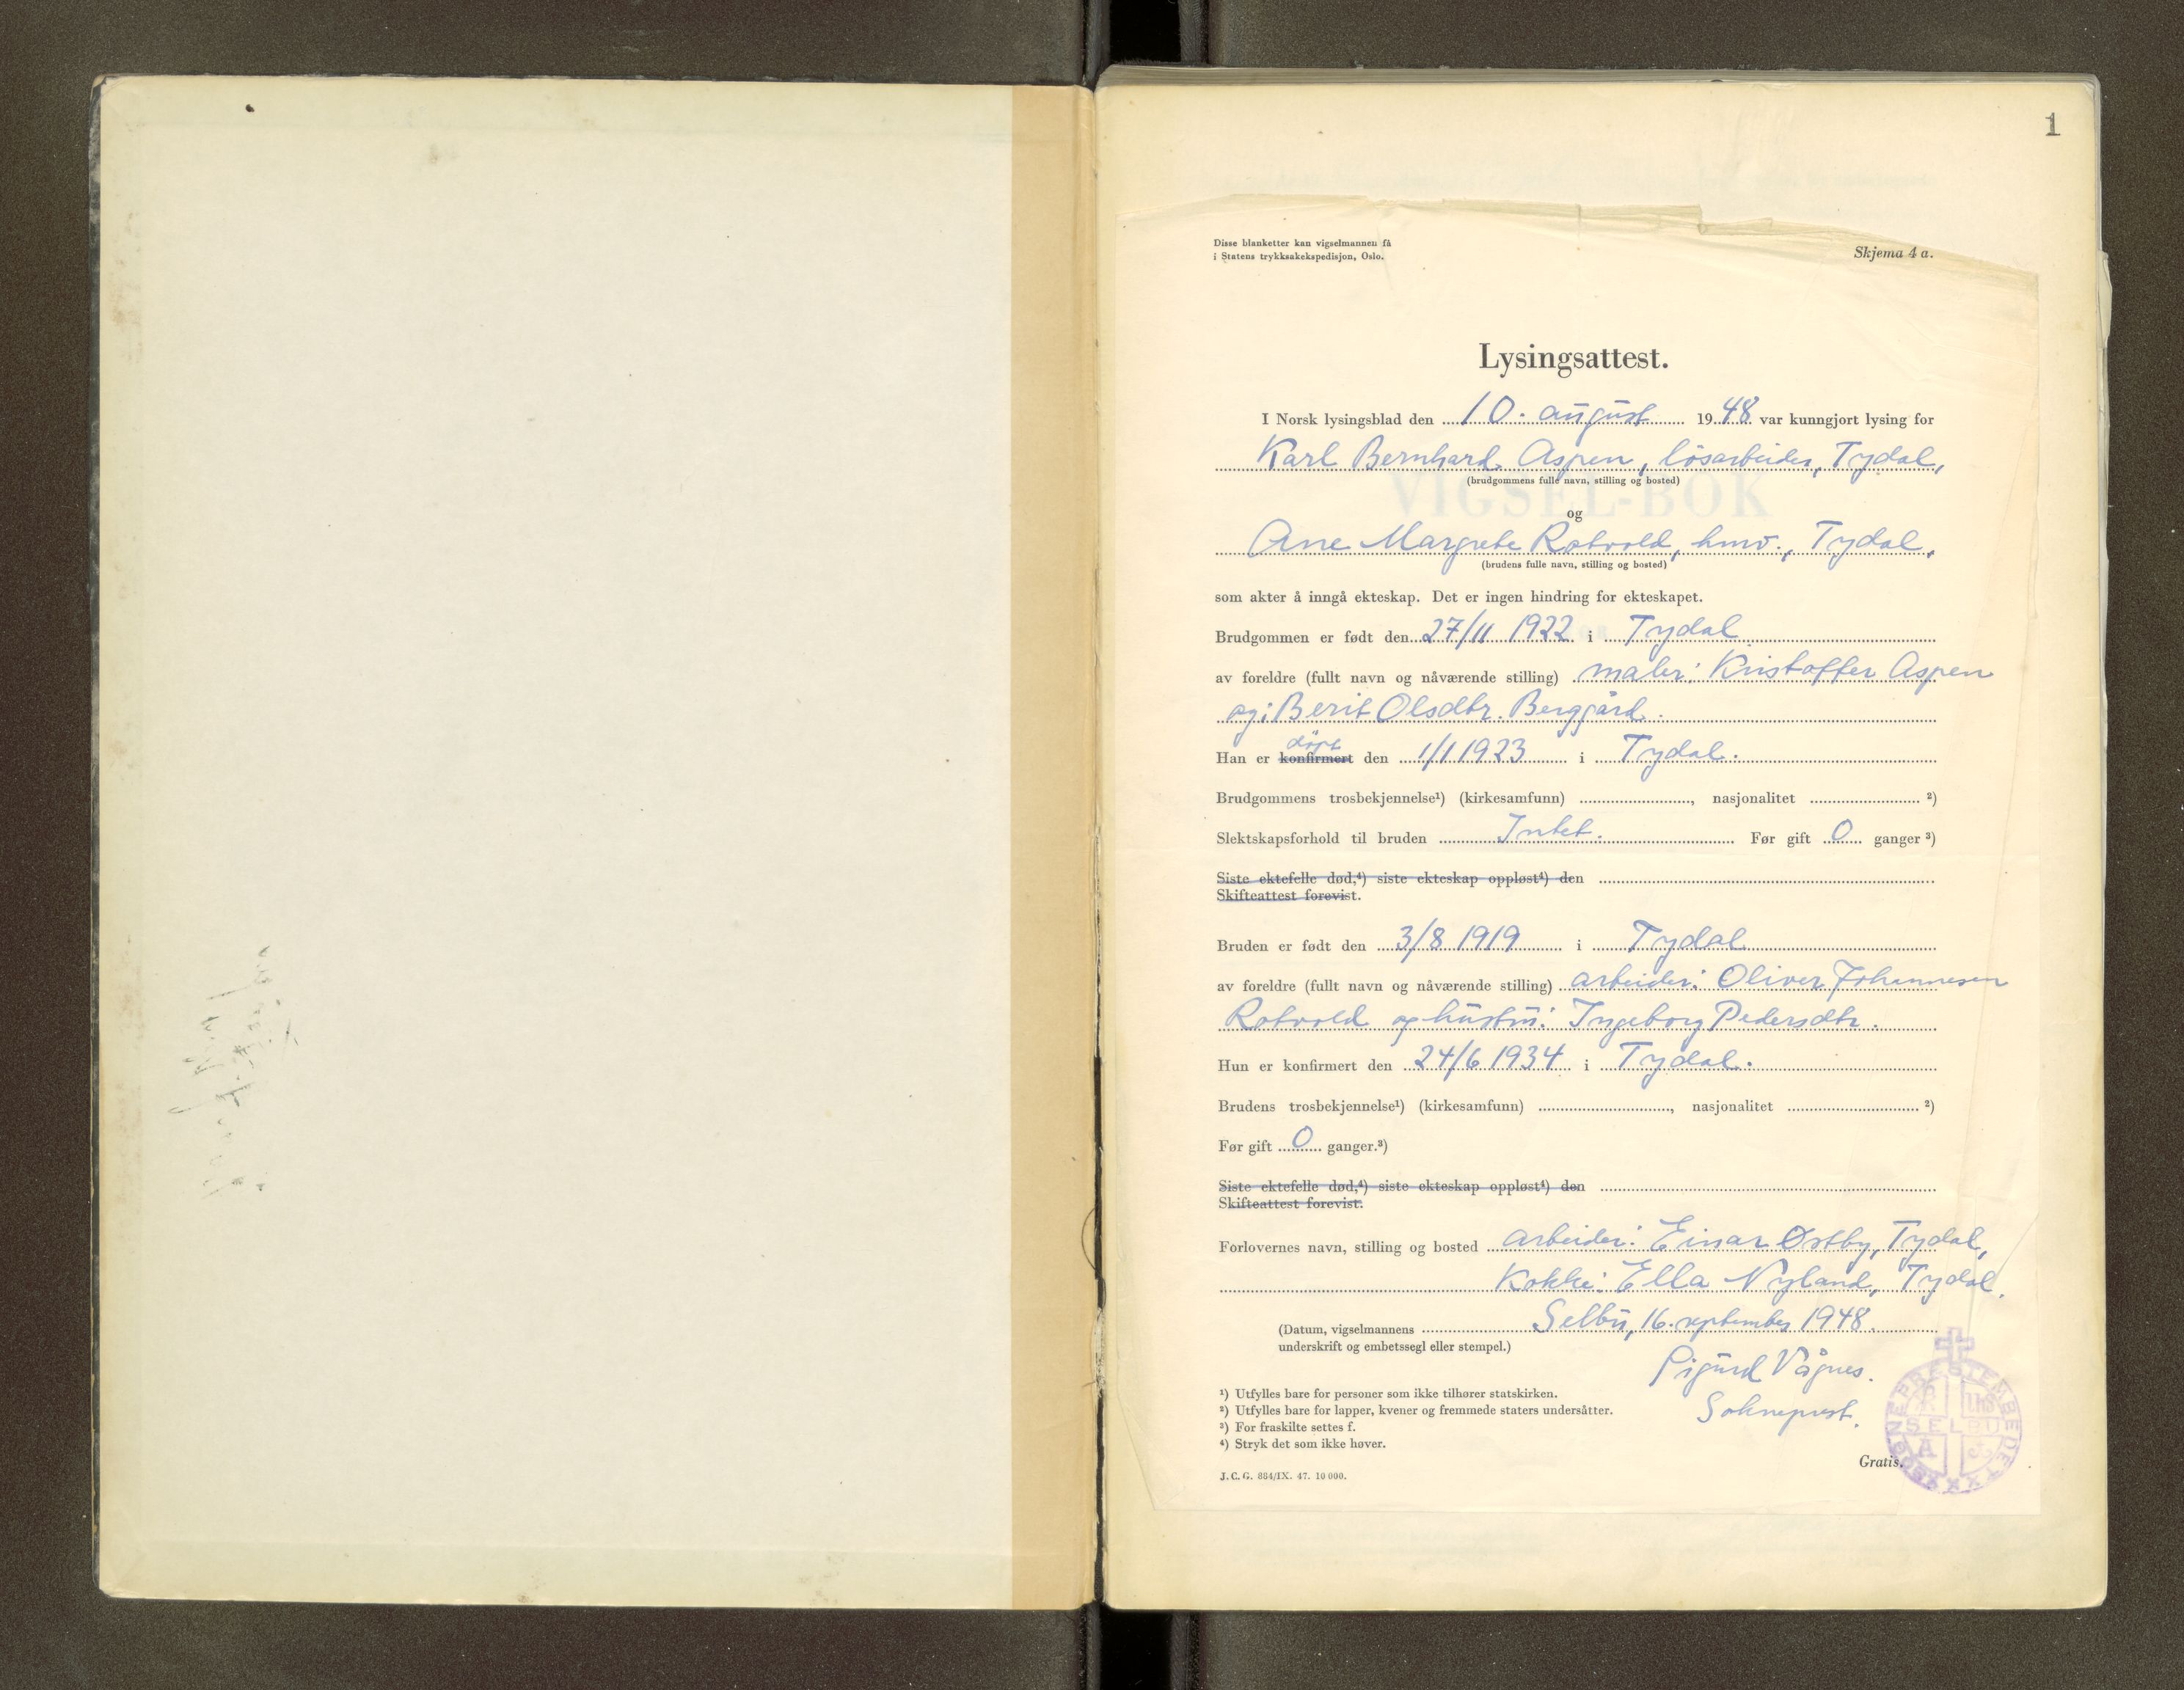 1
Disse blanketter kan vigselmannen få
i Statens trykksakekspedisjon, Oslo.
Skjema 4 a.
Lysingsattest.
I Norsk lysingsblad den 10. august 1948 var kunngjort lysing for
Karl Bernhard Aspen, løsarbeider, Tydal,
(brudgommens fulle navn, stilling og bosted)
VIGSEL-BOK
og
Ane Margrete Rotvold, hmv., Tydal.
(brudens fulle navn, stilling og bosted)
som akter å inngå ekteskap. Det er ingen hindring for ekteskapet.
Brudgommen er født den 27/11 1922 i Tydal
av foreldre (fullt navn og nåværende stilling) maler: Kristoffer Aspen
og: Berit Olsdtr. Berggård.
døpt
Han er konfirmert den 1/1 1923 i Tydal.
Brudgommens trosbekjennelse¹) (kirkesamfunn) ........, nasjonalitet ........ ²)
Slektskapsforhold til bruden Intet. Før gift 0 ganger ³)
Siste ektefelle død,⁴) siste ekteskap oppløst⁴) den
Skifteattest forevist.
Bruden er født den 3/8 1919 i Tydal
av foreldre (fullt navn og nåværende stilling) arbeider: Oliver Johannesen
Rotvold og hustru: Ingeborg Pedersdtr.
Hun er konfirmert den 24/6 1934 i Tydal.
Brudens trosbekjennelse¹) (kirkesamfunn) ........, nasjonalitet ........ ²)
Før gift 0 ganger.³)
Siste ektefelle død,⁴) siste ekteskap oppløst⁴) den
Skifteattest forevist.
Forlovernes navn, stilling og bosted arbeider: Einar Østby, Tydal,
Kokke: Ella Nyland, Tydal.
(Datum, vigselmannens Selbu, 16. september 1948.
underskrift og embetssegl eller stempel.)
Sigurd Vågnes.
Sokneprest.
¹) Utfylles bare for personer som ikke tilhører statskirken.
²) Utfylles bare for lapper, kvener og fremmede staters undersåtter.
³) For fraskilte settes f.
⁴) Stryk det som ikke høver.
SOGNEPRESTEMBEDET
SELBU
Gratis.
J. C. G. 884/IX. 47. 10 000.